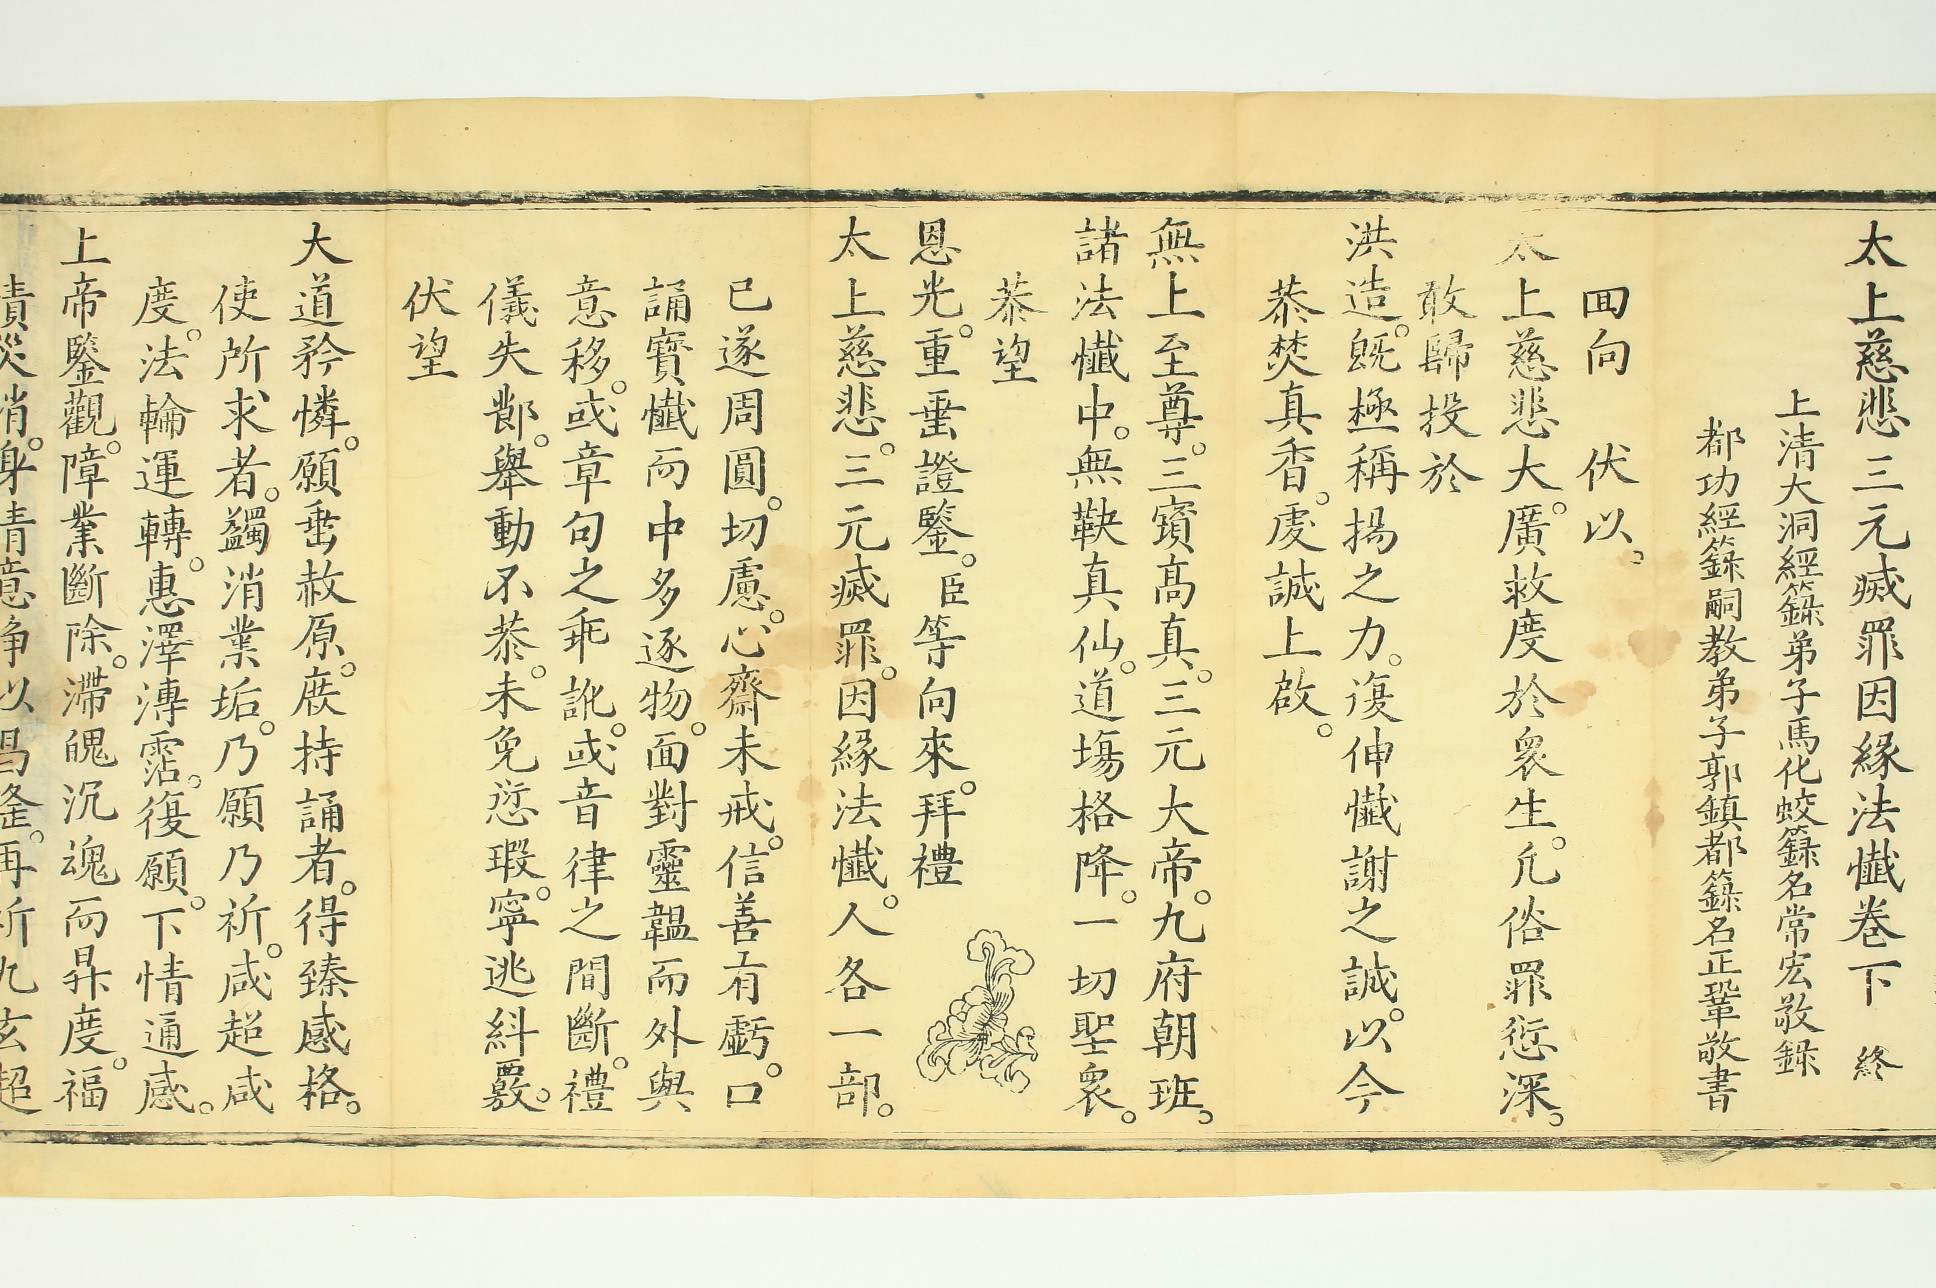 太上慈悲三元滅罪因緣法懺卷下　終
上清大洞經籙弟子馬化蛟籙名常宏敬錄
都功經籙嗣教弟子郭鎮都籙名正鞏敬書
囬向　伏以。
太上慈悲大。廣救度於衆生。凡俗罪愆深。
敢歸投於
洪造。旣極稱揚之力。復伸懺謝之誠。以今
恭焚真香。虔誠上啟。
無上至尊。三寶髙真。三元大帝。九府朝班。
諸法懺中。無鞅真仙。道塲格降。一切聖衆。
恭望
恩光。重垂證鑒。臣等向來。拜禮
太上慈悲。三元滅罪。因緣法懺。人各一部。
已遂周圓。切慮。心齋未戒。信善有虧。口
誦寶懺而中多逐物。面對靈韞而外與
意移。或章句之乖訛。或音律之間斷。禮
儀失鄙。舉動不恭。未免愆瑕。寧逃糾覈。
伏望
大道矜憐。願垂赦原。庻持誦者。得臻感格。
使所求者。蠲消業垢。乃願乃祈。咸超咸
度。法輪運轉。惠澤溥霑。復願。下情通感。
上帝鑒觀。障業斷除。滯魄沉魂而昇度。福
災消。身清意凈以昌隆。再祈九玄超